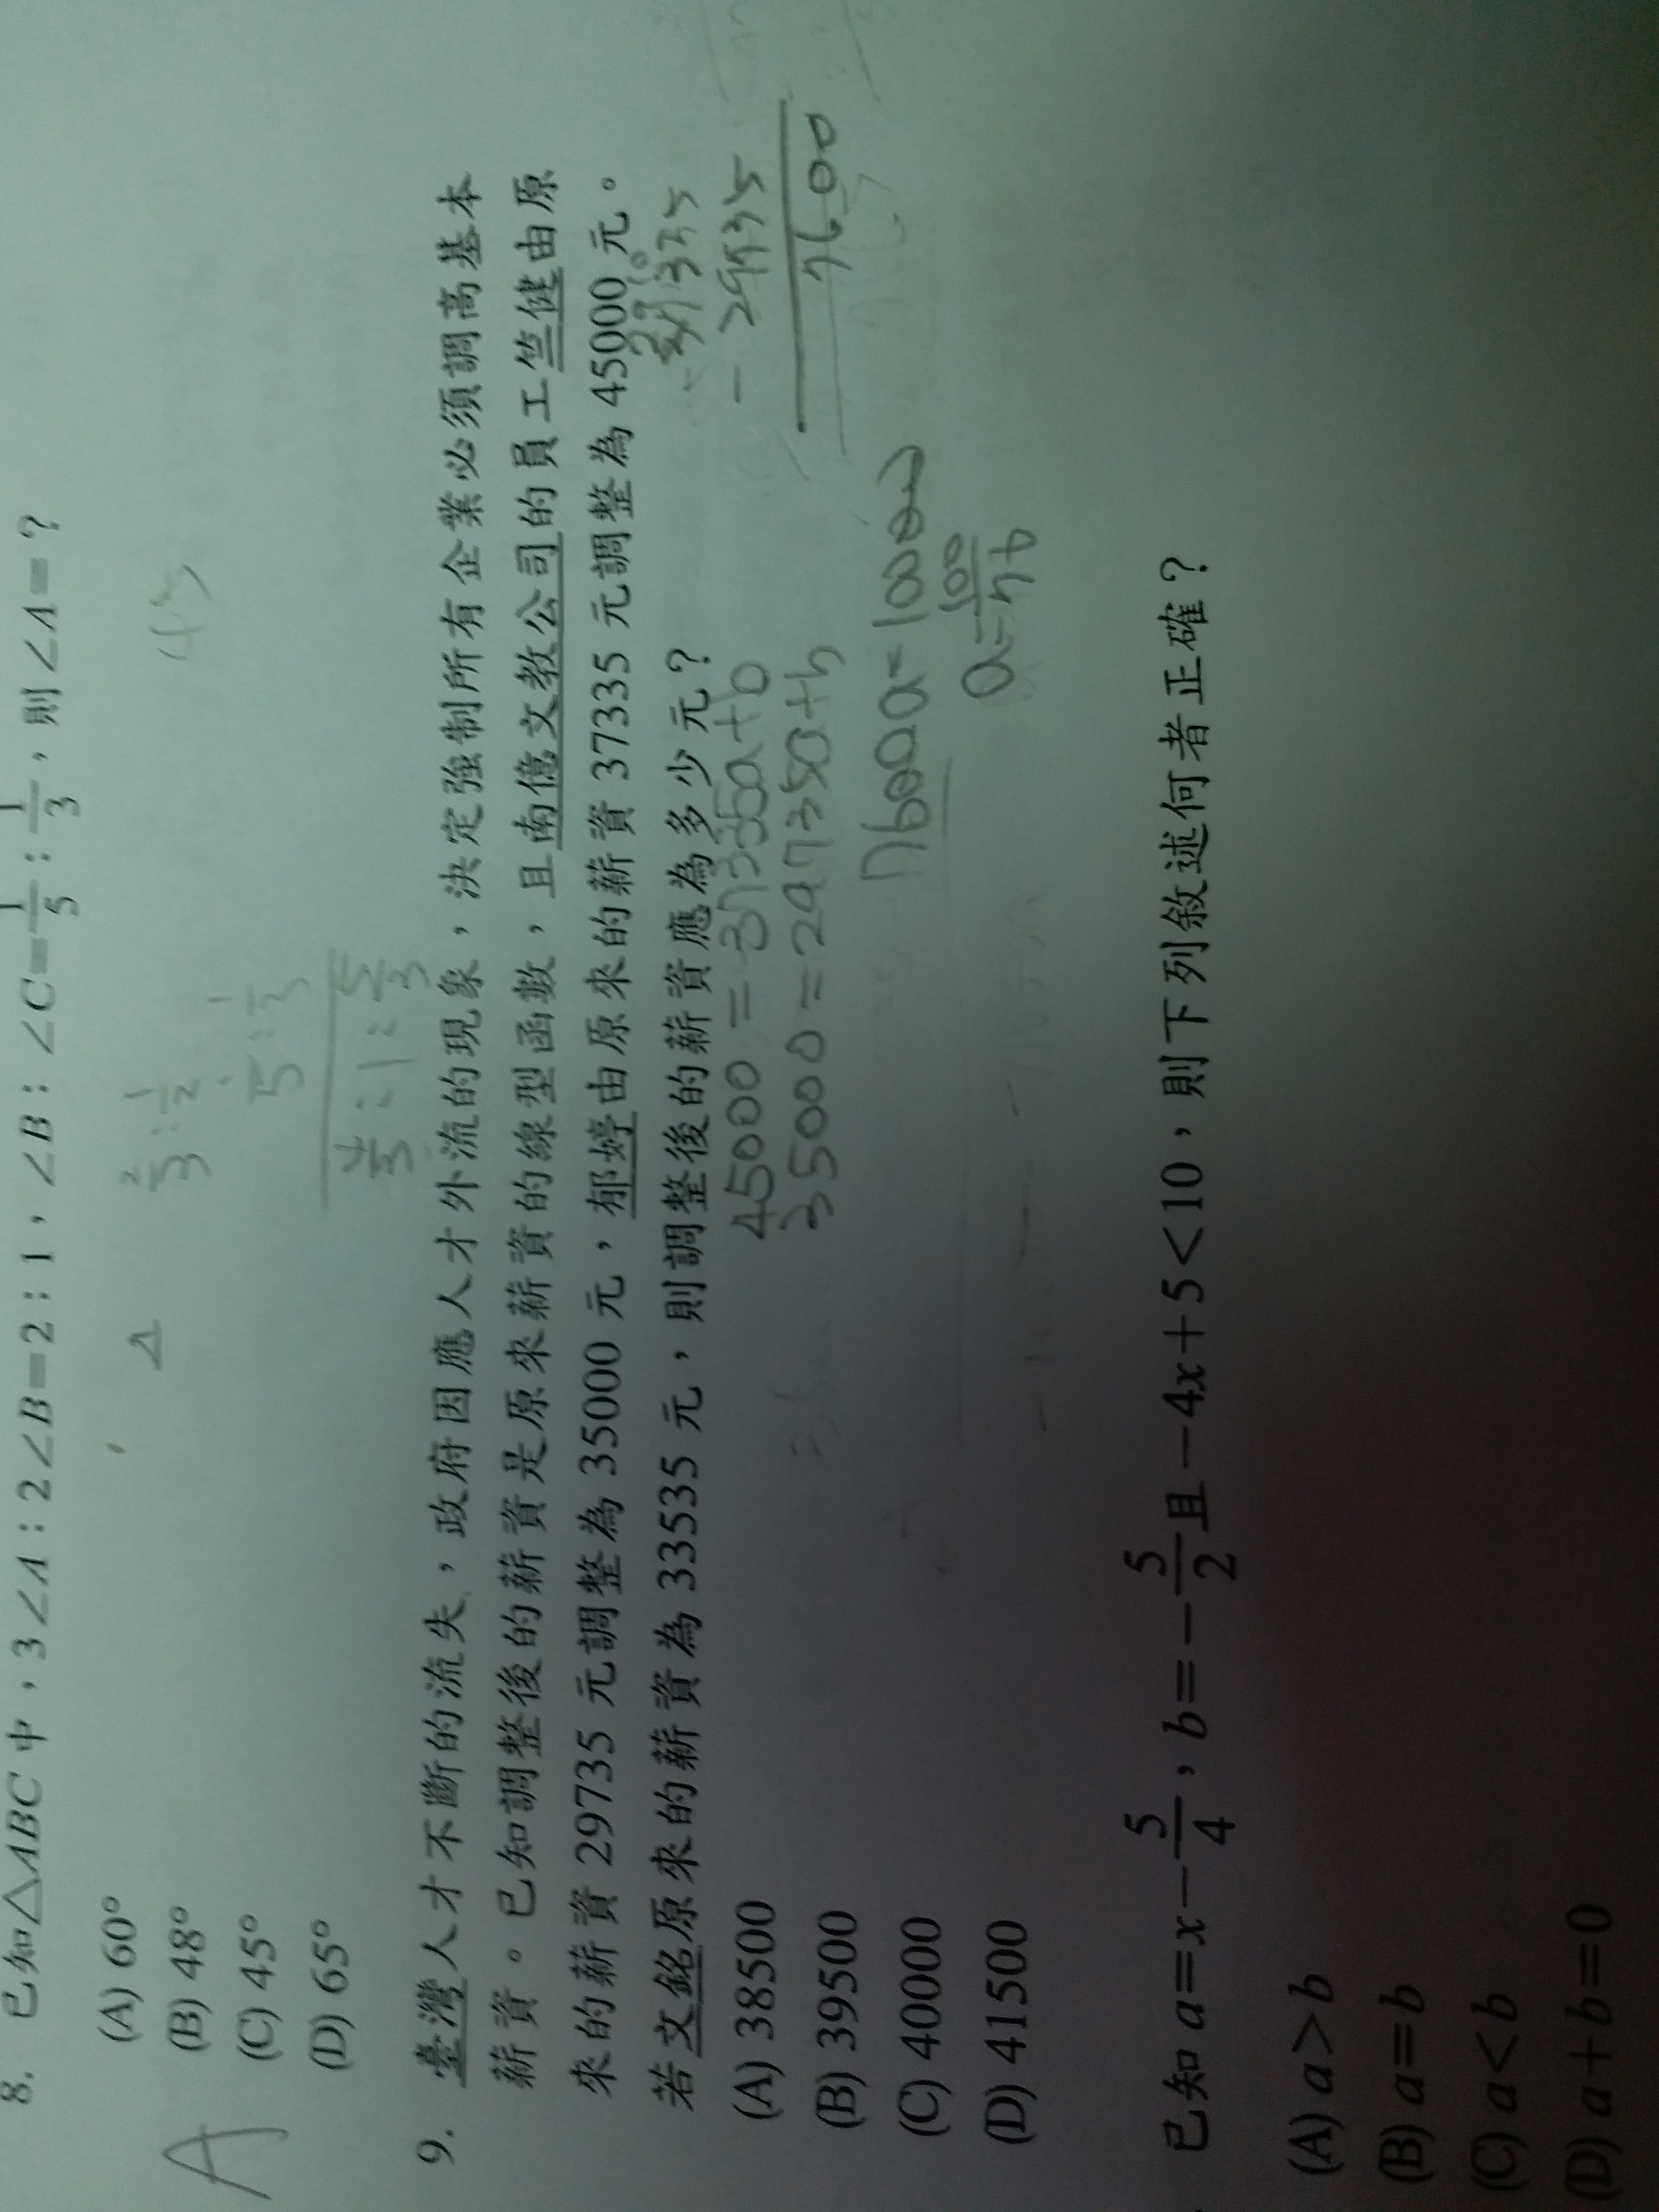 8. 已知△ABC中，3∠A：2∠B=2：1，∠B：∠C=1/5：1/3，則∠A=？
(A) 60°
(B) 48°
(C) 45°
(D) 65°
A
2/3：1/2
1/5：1/3
9. 臺灣人才不斷的流失，政府因應人才外流的現象，決定強制所有企業必須調高基本
薪資。已知調整後的薪資是原來薪資的線型函數，且南億文教公司的員工竺健由原
來的薪資 29735 元調整為 35000 元，郁婷由原來的薪資 37335 元調整為 45000 元。
若文銘原來的薪資為 33535 元，則調整後的薪資應為多少元？
(A) 38500
(B) 39500
(C) 40000
(D) 41500
45000=37335a+b
35000=29735a+b
7600a=10000
a=100/76
37335
－29735
7600
已知 a=x－5/4，b=－5/2且－4x＋5＜10，則下列敘述何者正確？
(A) a＞b
(B) a=b
(C) a＜b
(D) a＋b=0